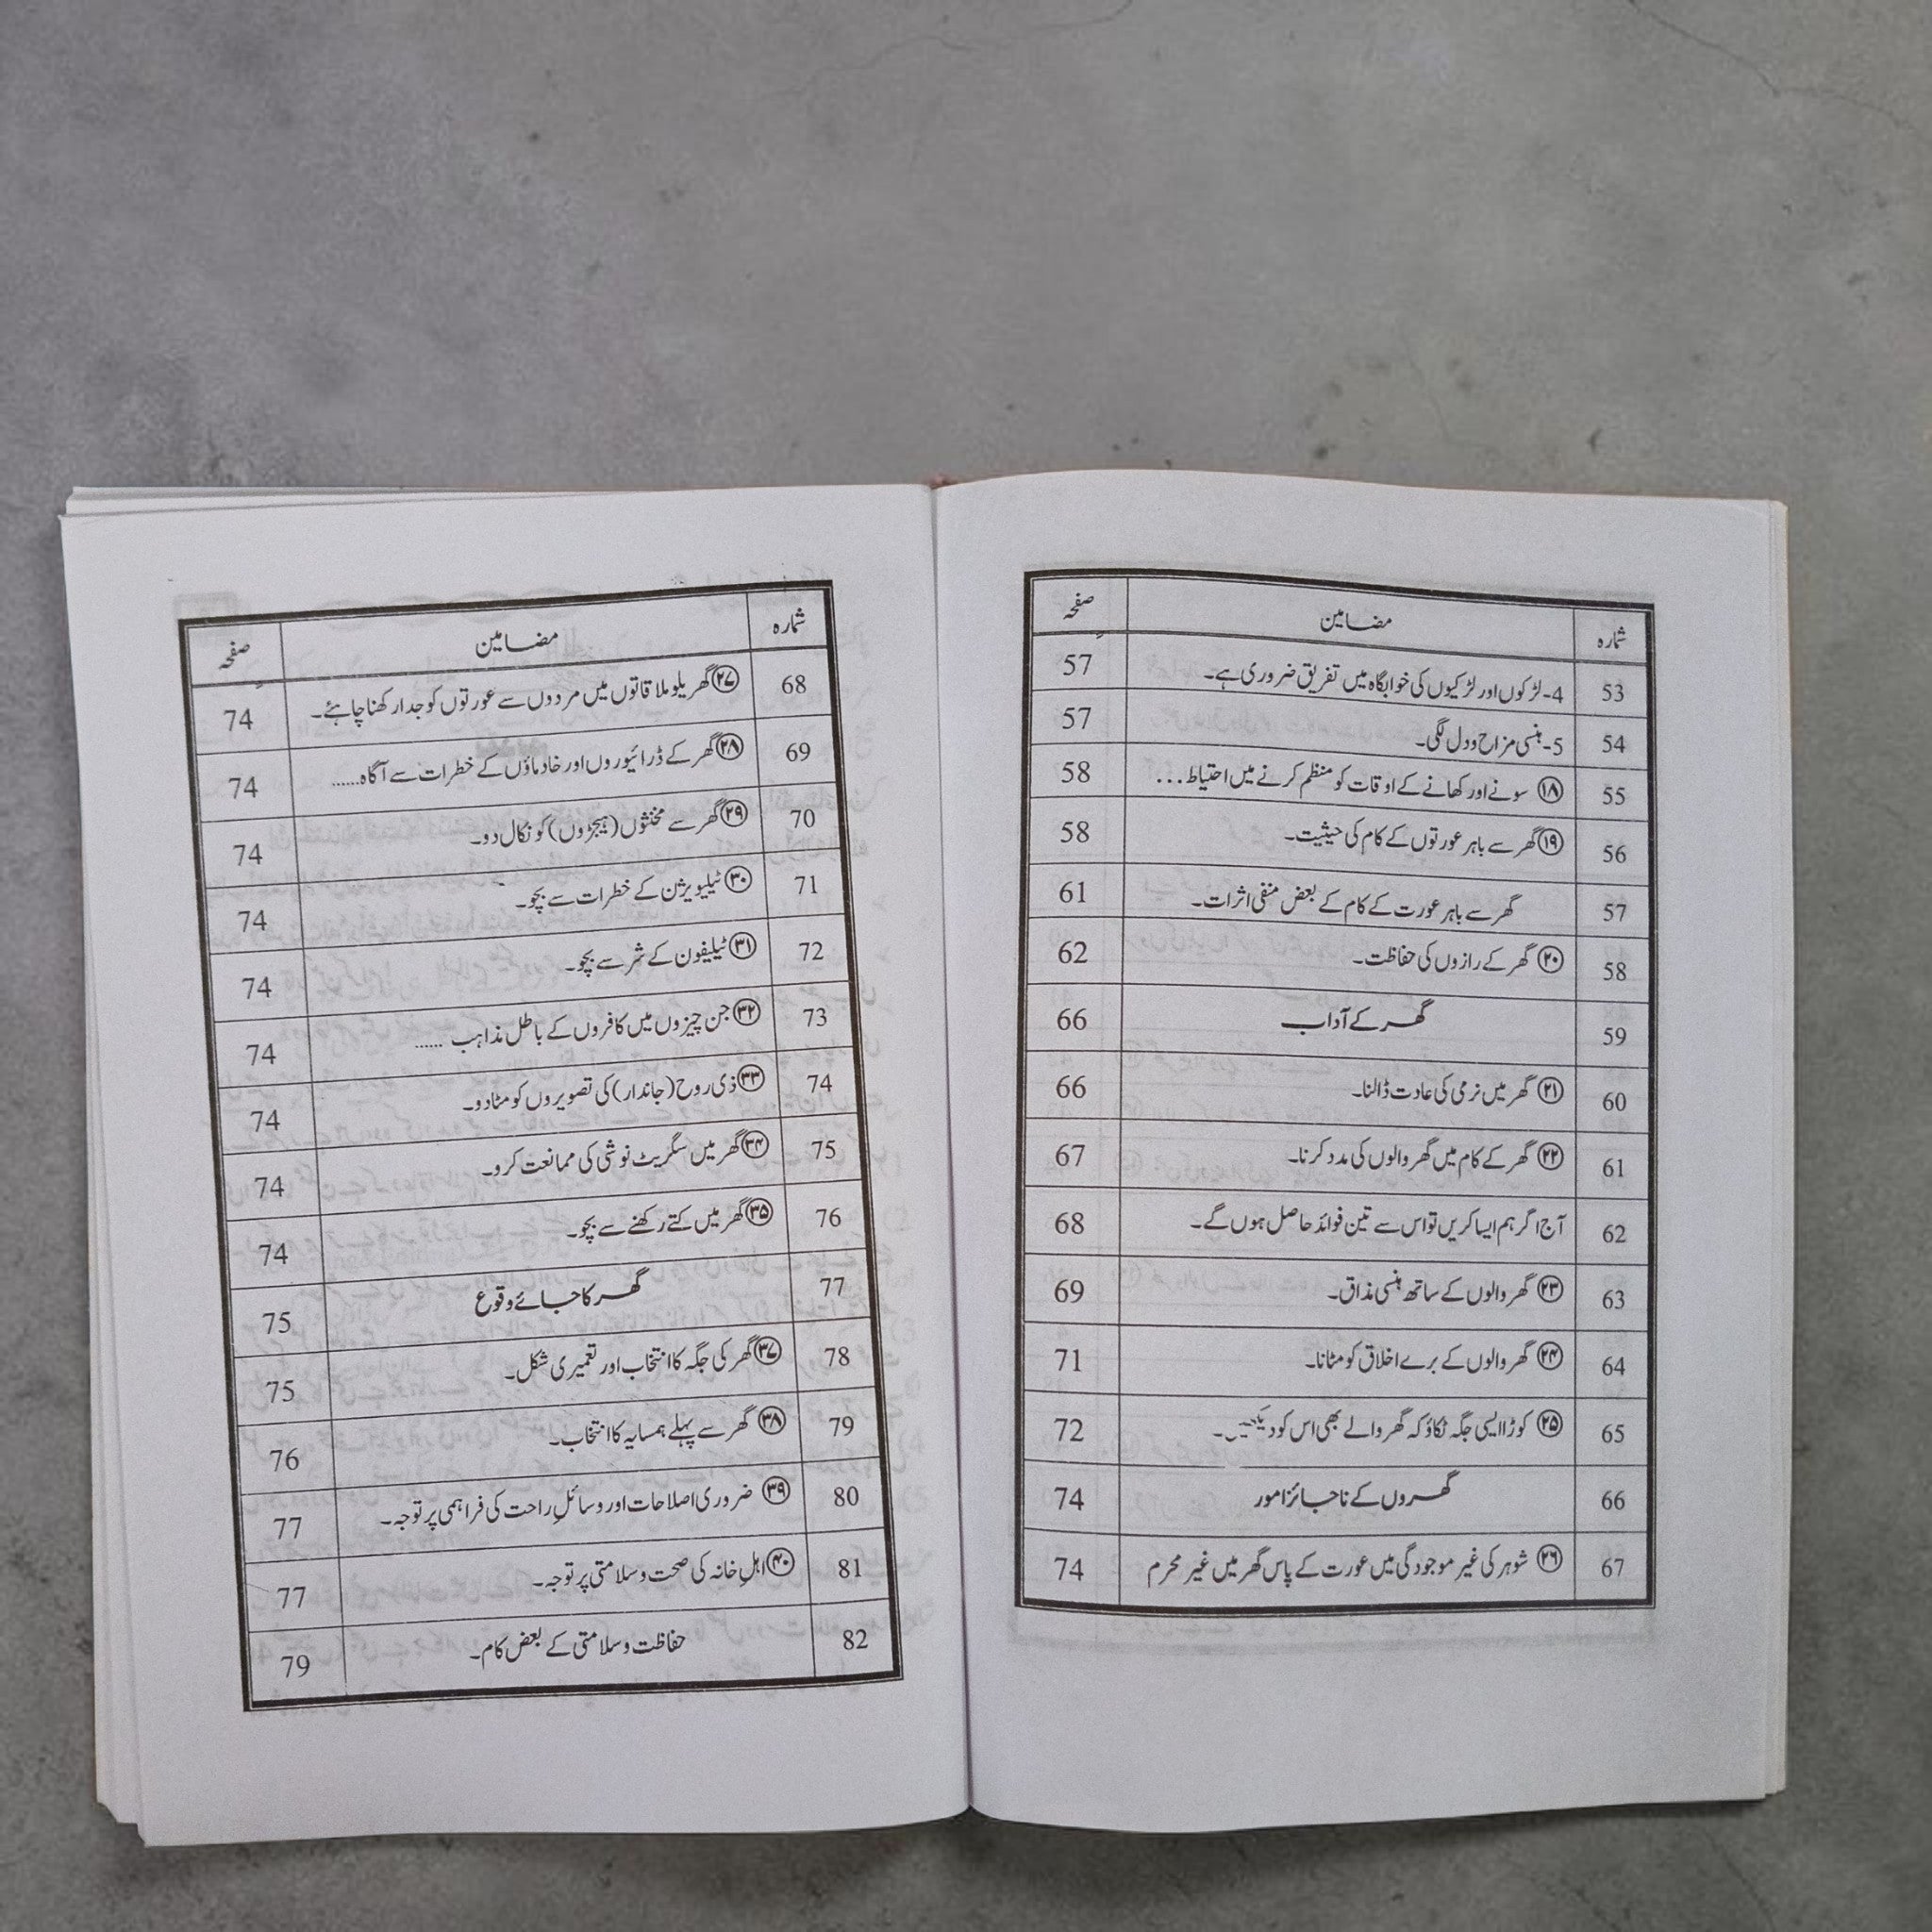 شمارہ مضامین صفحہ
53 4-لڑکوں اور لڑکیوں کی خوابگاہ میں تفریق ضروری ہے۔ 57
54 5-ہنسی مزاح و دل لگی۔ 57
55 ⑱ سونے اور کھانے کے اوقات کو منظم کرنے میں احتیاط... 58
56 ⑲ گھر سے باہر عورتوں کے کام کی حیثیت۔ 58
57 گھر سے باہر عورت کے کام کے بعض منفی اثرات۔ 61
58 ⑳ گھر کے رازوں کی حفاظت۔ 62
59 گھر کے آداب 66
60 ㉑ گھر میں نرمی کی عادت ڈالنا۔ 66
61 ㉒ گھر کے کام میں گھر والوں کی مدد کرنا۔ 67
62 آج اگر ہم ایسا کریں تو اس سے تین فوائد حاصل ہوں گے۔ 68
63 ㉓ گھر والوں کے ساتھ ہنسی مذاق۔ 69
64 ㉔ گھر والوں کے برے اخلاق کو مٹانا۔ 71
65 ㉕ کوڑا ایسی جگہ لٹکاؤ کہ گھر والے بھی اس کو دیکھیں۔ 72
66 گھروں کے ناجائز امور 74
67 ㉖ شوہر کی غیر موجودگی میں عورت کے پاس گھر میں غیر محرم 74
شمارہ مضامین صفحہ
68 ㉗ گھریلو ملاقاتوں میں مردوں سے عورتوں کو جدا رکھنا چاہئے۔ 74
69 ㉘ گھر کے ڈرائیوروں اور خادماؤں کے خطرات سے آگاہ...... 74
70 ㉙ گھر سے مخنثوں (ہیجڑوں) کو نکال دو۔ 74
71 ㉚ ٹیلیویژن کے خطرات سے بچو۔ 74
72 ㉛ ٹیلیفون کے شر سے بچو۔ 74
73 ㉜ جن چیزوں میں کافروں کے باطل مذاہب ...... 74
74 ㉝ ذی روح (جاندار) کی تصویروں کو مٹا دو۔ 74
75 ㉞ گھر میں سگریٹ نوشی کی ممانعت کرو۔ 74
76 ㉟ گھر میں کتے رکھنے سے بچو۔ 74
77 گھر کا جائے وقوع 75
78 ㊲ گھر کی جگہ کا انتخاب اور تعمیری شکل۔ 75
79 ㊳ گھر سے پہلے ہمسایہ کا انتخاب۔ 76
80 ㊴ ضروری اصلاحات اور وسائلِ راحت کی فراہمی پر توجہ۔ 77
81 ㊵ اہلِ خانہ کی صحت و سلامتی پر توجہ۔ 77
82 حفاظت و سلامتی کے بعض کام۔ 79